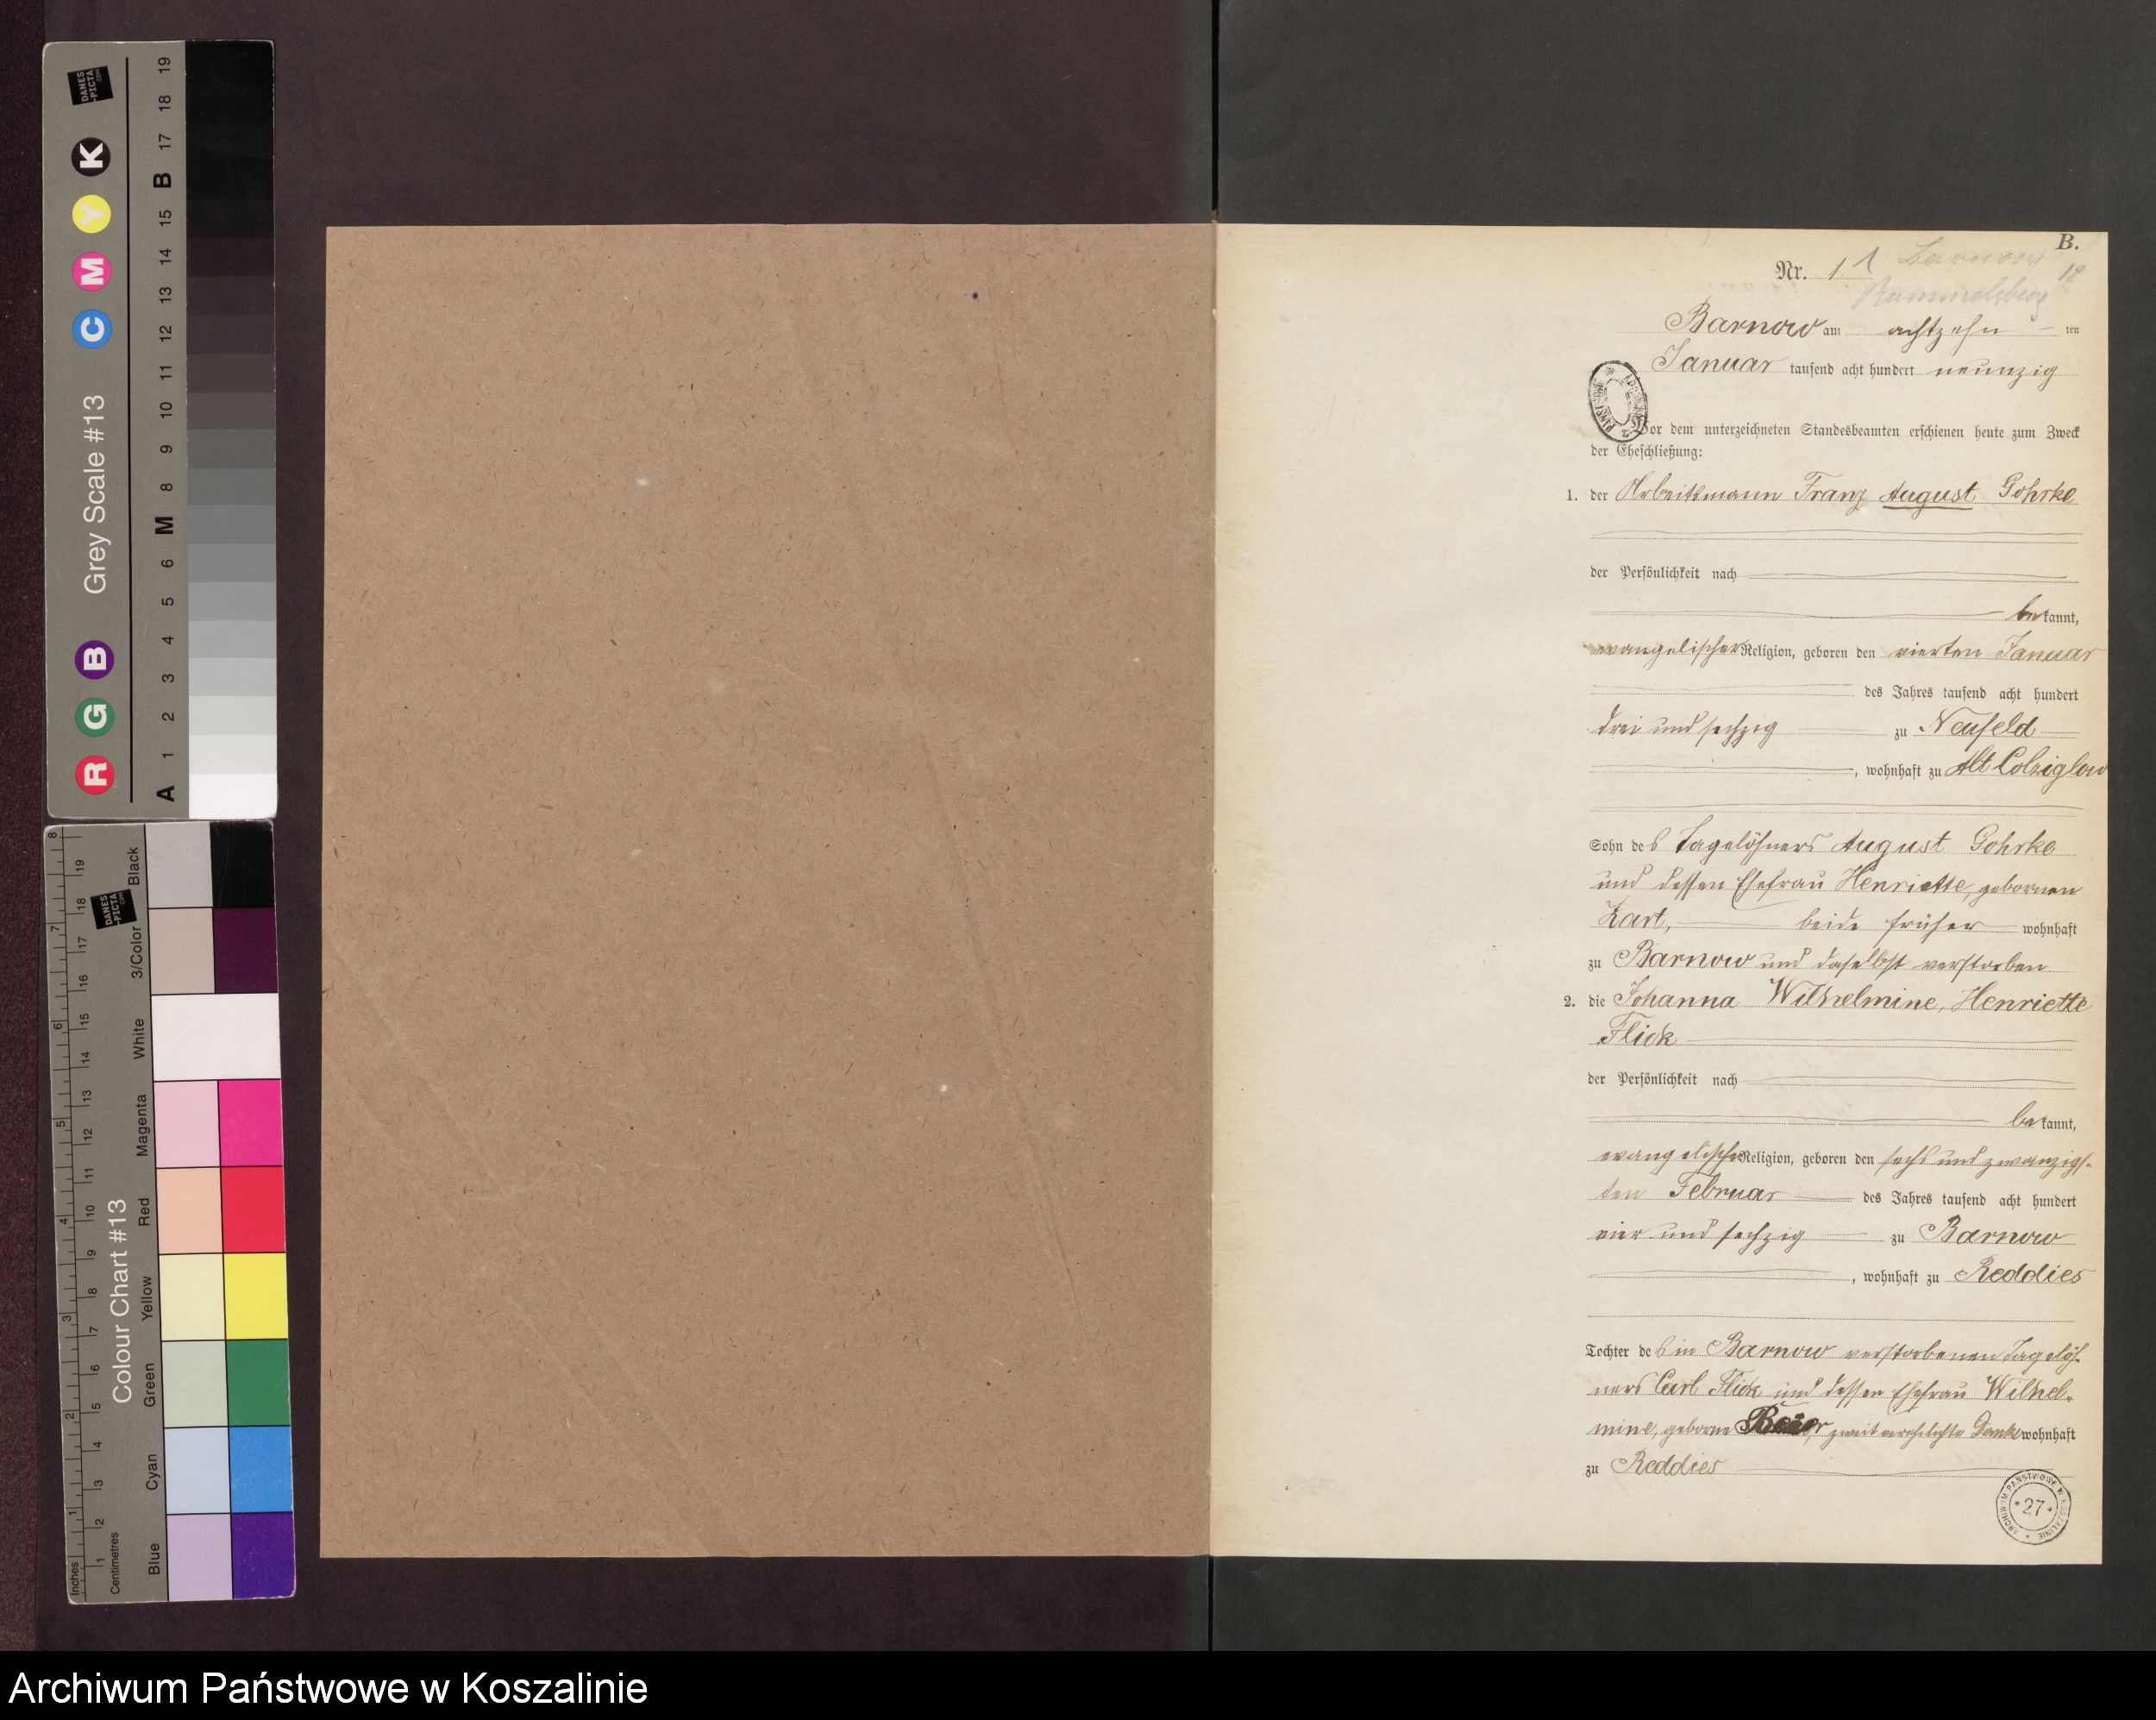 B.
Nr. 1
Barnow
Rummelsberg
Barnow am achtzehn ten
Januar tausend acht hundert neunzig
Vor dem unterzeichneten Standesbeamten erschienen heute zum Zweck
der Eheschließung:
1. der Arbeitsmann Franz August Gohrke
der Persönlichkeit nach
bekannt,
evangelischer Religion, geboren den vierten Januar
des Jahres tausend acht hundert
drei und sechzig zu Neufeld
, wohnhaft zu Alt Colziglow
Sohn des Tagelöhners August Gohrke
und dessen Ehefrau Henriette, gebornen
beide früher wohnhaft
zu Barnow und daselbst verstorben
2. die Johanna Wilhelmine, Henriette
Flick
der Persönlichkeit nach
bekannt,
evangelischer Religion, geboren den sechs und zwanzigs-
ten Februar des Jahres tausend acht hundert
vier und sechzig zu Barnow
, wohnhaft zu Reddies
Tochter des in Barnow verstorbenen Tagelöh-
ners Carl Flick und dessen Ehefrau Wilhel-
mine, geborne zweit verehelichte wohnhaft
zu Reddies
ARCHIWUM PAŃSTWOWE W KOSZALINIE
27
DANES-PICTA.COM
Grey Scale #13
R G B C M Y K
A 1 2 3 4 5 6 M 8 9 10 11 12 13 14 15 B 17 18 19
DANES-PICTA.COM
Colour Chart #13
Blue Cyan Green Yellow Red Magenta White 3/Color Black
Inches 1 2 3 4 5 6 7 8
Centimetres 1 2 3 4 5 6 7 8 9 10 11 12 13 14 15 16 17 18 19
Archiwum Państwowe w Koszalinie